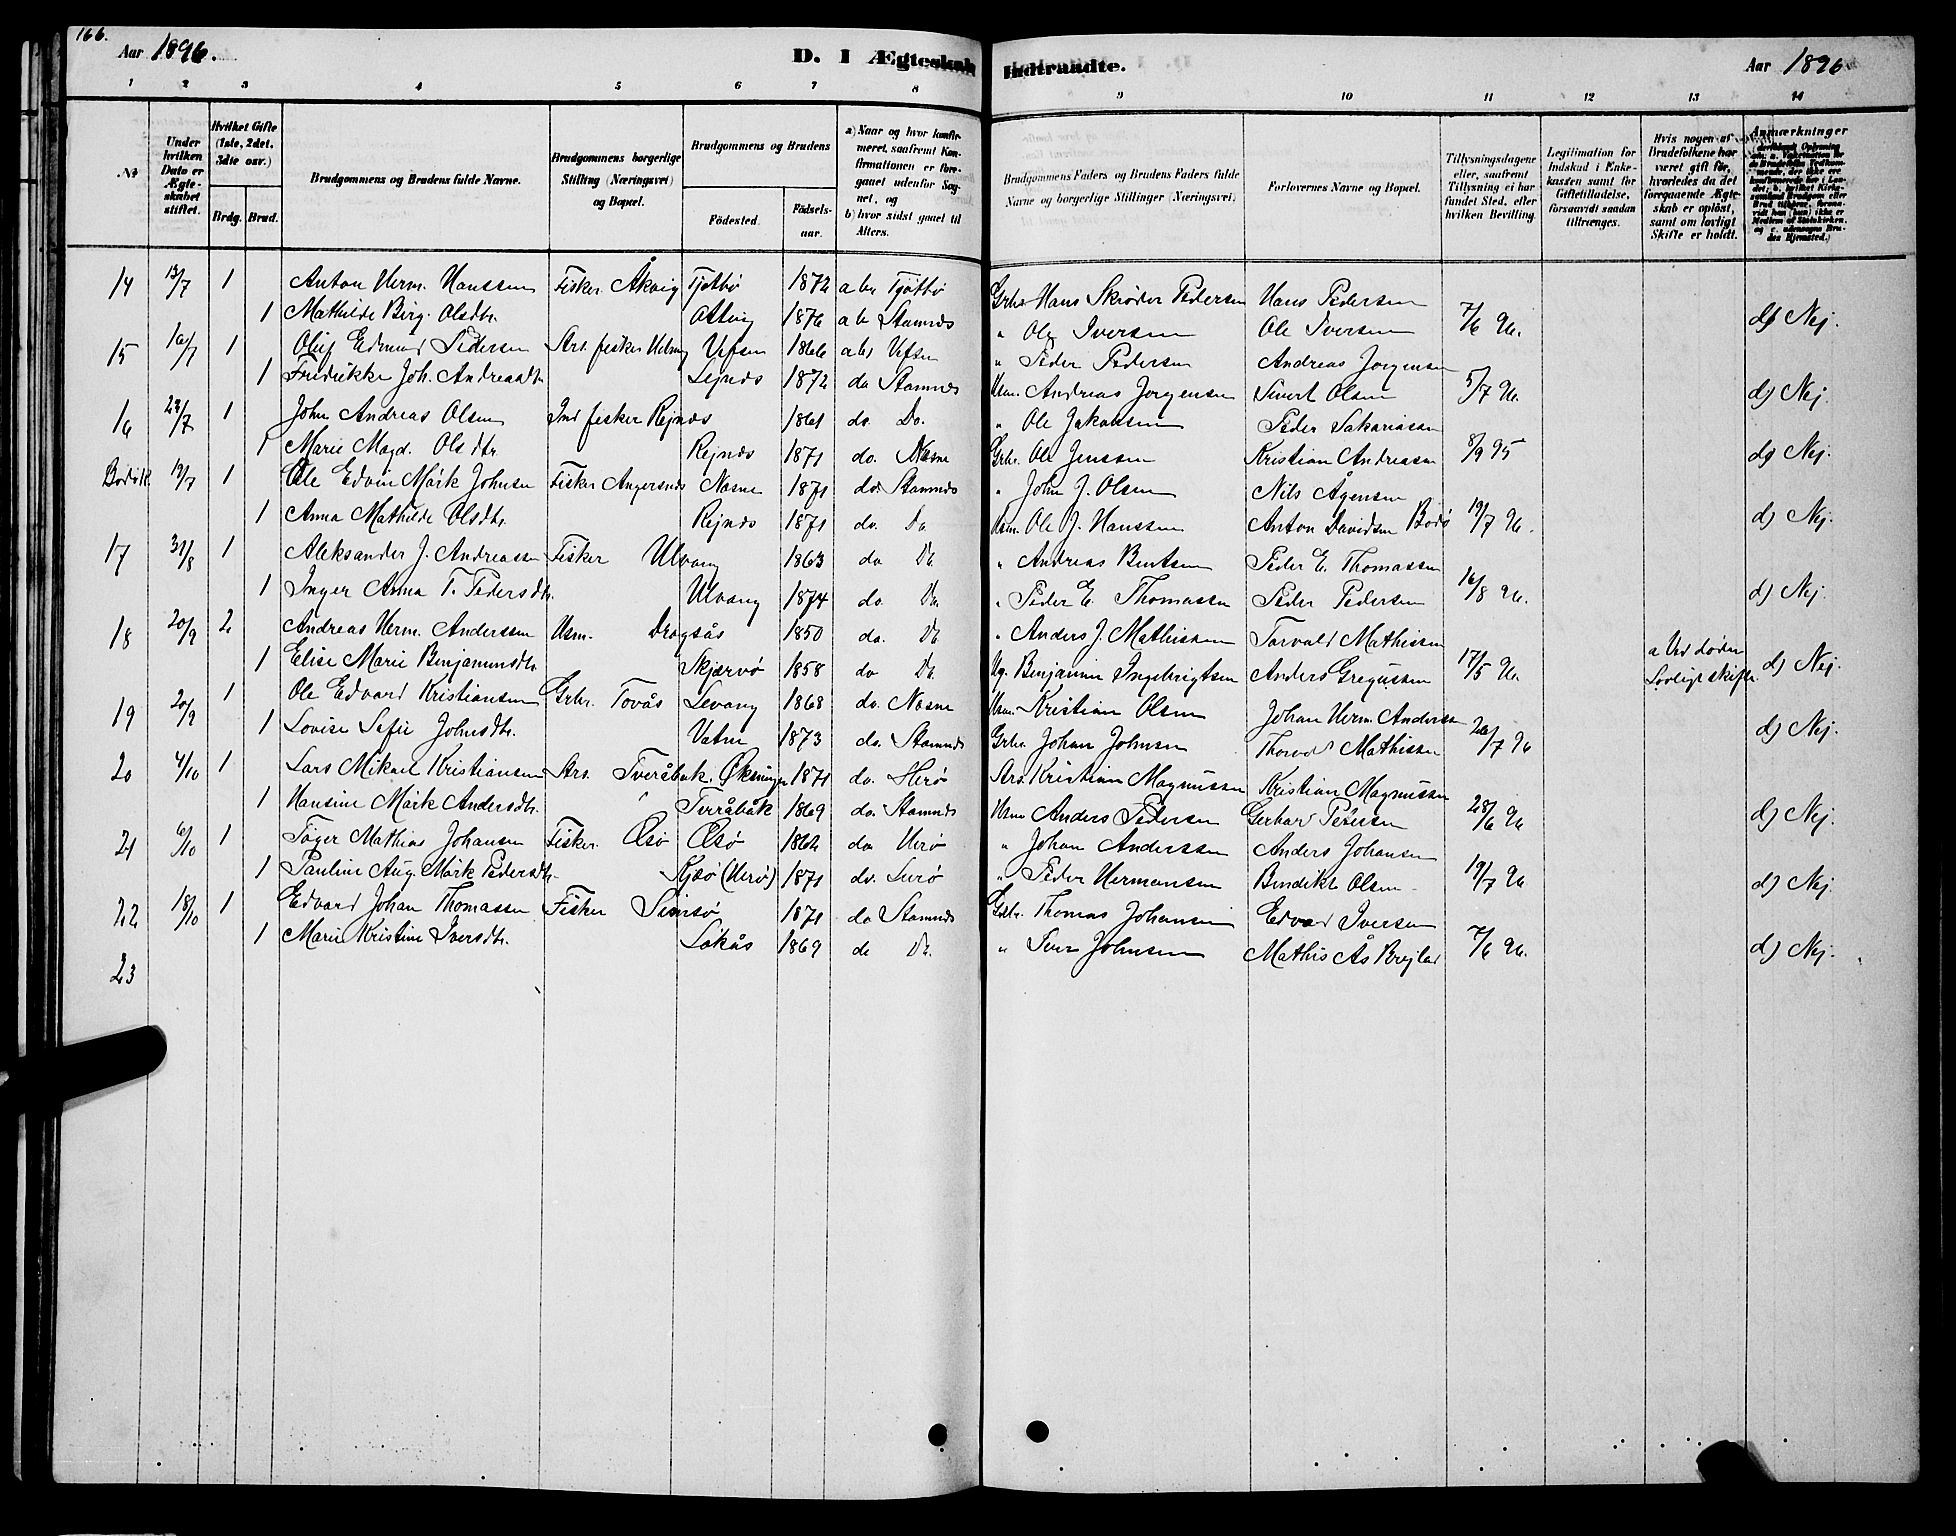 166.
Aar 1896.
D. I Ægteskab Indtraadte.
Aar 1896
1 2 3 4 5 6 7 8 9 10 11 12 13 14
No
Under hvilken Dato er Ægteskabet stiftet.
Hvilket Gifte (1ste, 2det, 3die osv.)
Brdg. Brud.
Brudgommens og Brudens fulde Navne.
Brudgommens borgerlige Stilling (Næringsvei) og Bopæl.
Brudgommens og Brudens
Fødested. Fødselsaar.
a) Naar og hvor konfirmeret, saafremt Konfirmationen er foregaaet udenfor Sognet, og
b) hvor sidst gaaet til Alters.
Brudgommens Faders og Brudens Faders fulde Navne og borgerlige Stillinger (Næringsvei)
Forlovernes Navne og Bopæl.
Tillysningsdagene eller, saafremt Tillysning ei har fundet Sted, efter hvilken Bevilling.
Legitimation for Indskud i Enkekassen samt for Giftetilladelse, forsaavidt saadan tiltrænges.
Hvis nogen af Brudefolkene har været gift før, hvorledes da det foregaaende Ægteskab er opløst, samt om lovligt Skifte er holdt.
Anmærkninger
14 13/7 1 Anton Herm. Hanssen Fisker Åkvig Tjøttø 1872 a b Tjøttø Grbr. Hans Skrøder Pedersen Hans Pedersen 7/6 96. d) Nej.
1 Mathilde Birg. Olsdtr. 1876 a b Stamnes " Ole Iversen Ole Iversen
15 16/7 1 Oluf Edmund Pedersen Arb. fisker Vefsen 1866 a b Vefsn " Peder Pedersen Andreas Jorgensen 5/7 96. d) Nej.
1 Fredrikke Joh. Andreasdtr. 1872 do Stamnes Hsm. Andreas Jorgensen Sivert Olsen
16 23/7 1 John Andreas Olsen Ind fisker Rejnes 1861 do. Do. " Ole Jakobsen Peder Sakariasen 8/9 95 d) Nej.
1 Marie Magd. Olsdtr. Rejnes 1871 do. Næsne Grbr. Ole Jenssen Kristian Andreasen
19/7 1 Ole Edvin Märk Johnsen Fisker Angersnes Næsne 1871 do. Stamnes " John J. Olsen Nils Ågensen 19/7 96. d) Nej.
1 Anna Mathilde Olsdtr. Rejnes 1871 do. Do Hsm. Ole J. Hanssen Anton Davidsen Bodø
17 31/8 1 Aleksander J. Andreassen Fisker Ulvang 1863 do Do. " Andreas Bentsen Peder E. Thomassen 16/8 96. d) Nej.
1 Inger Anna T. Pedersdtr. Ulvang 1874 do. Do. " Peder E. Thomassen Peder Pedersen
18 20/9 2 Andreas Herm. Anderssen Hsm. Dragsås 1850 do. Do " Anders J. Mathissen Torvald Mathissen 17/5 96. a Ved døden Lovligt skifte d) Nej.
1 Elise Marie Benjaminsdtr. Skjærvø 1858 do Do. Benjamin Ingebrigtsen Anders Gregussen
19 20/9 1 Ole Edvard Kristiansen Grbr. Tovås Levang 1868 do. Næsne Hsm. Kristian Olsen Johan Herm. Andersen 26/7 96 d) Nej.
1 Lovise Sefie Johnsdtr. Vatne 1873 do. Stamnes Grbr. Johan Johnsen Thorvd Mathissen
20 4/10 1 Lars Mikael Kristiansen Arb. Tveråbak. Øksningen 1871 do. Herø Arb. Kristian Magnussen Kristian Magnussen 28/6 96 d) Nej.
1 Hansine Märk Andersdtr. Tverråbåk 1869 do. Stamnes Hsm Anders Pedersen Gerhard Petersen
21 6/10 1 Tøger Mathias Johansen Fisker. Ølsø Ølsø 1862 do Herø " Johan Anderssen Anders Johansen 19/7 96 d) Nej.
1 Pauline Aug. Märk Pedersdtr. (Herø) 1871 do. Lurø " Peder Hermansen Bendikt Olsen
22 18/10 1 Edvard Johan Thomassen Fisker 1871 do Stamnes Grbr. Thomas Johansen Edvard Iversen 7/6 96. d) Nej.
1 Marie Kristine Iversdtr. Låkås 1869 do Do. " Iver Johnsen Mathis Ås
23